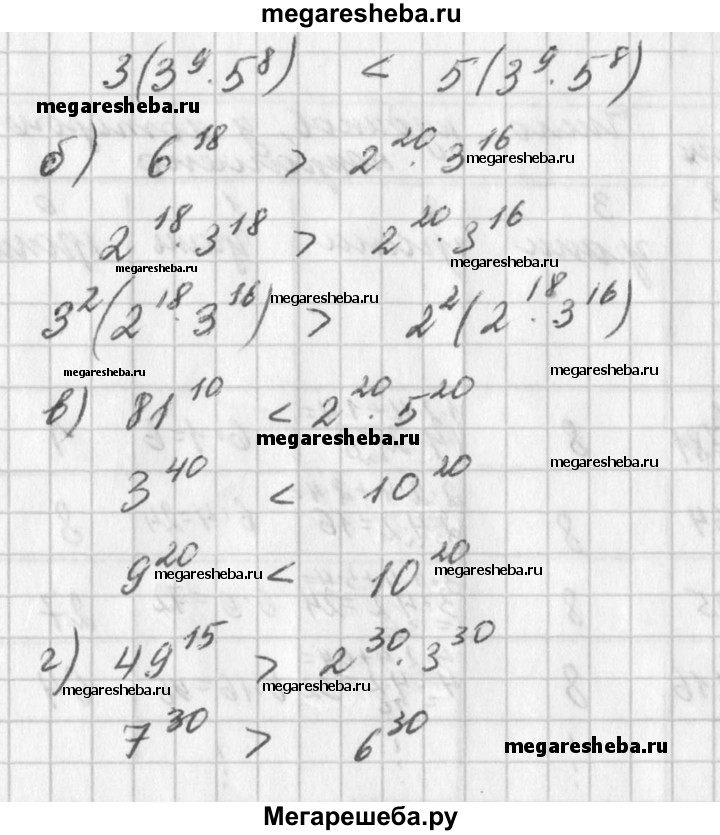 megaresheba.ru
3(3⁹·5⁸) < 5(3⁹·5⁸)
megaresheba.ru
б) 6¹⁸ > 2²⁰·3¹⁶
megaresheba.ru
2¹⁸·3¹⁸ > 2²⁰·3¹⁶
megaresheba.ru megaresheba.ru
3²(2¹⁸·3¹⁶) > 2²(2¹⁸·3¹⁶)
megaresheba.ru
megaresheba.ru megaresheba.ru
в) 81¹⁰ < 2²⁰·5²⁰
megaresheba.ru
3⁴⁰ < 10²⁰
megaresheba.ru
9²⁰ < 10²⁰
megaresheba.ru megaresheba.ru
г) 49¹⁵ > 2³⁰·3³⁰
megaresheba.ru megaresheba.ru
7³⁰ > 6³⁰
megaresheba.ru
Мегарешеба.ру